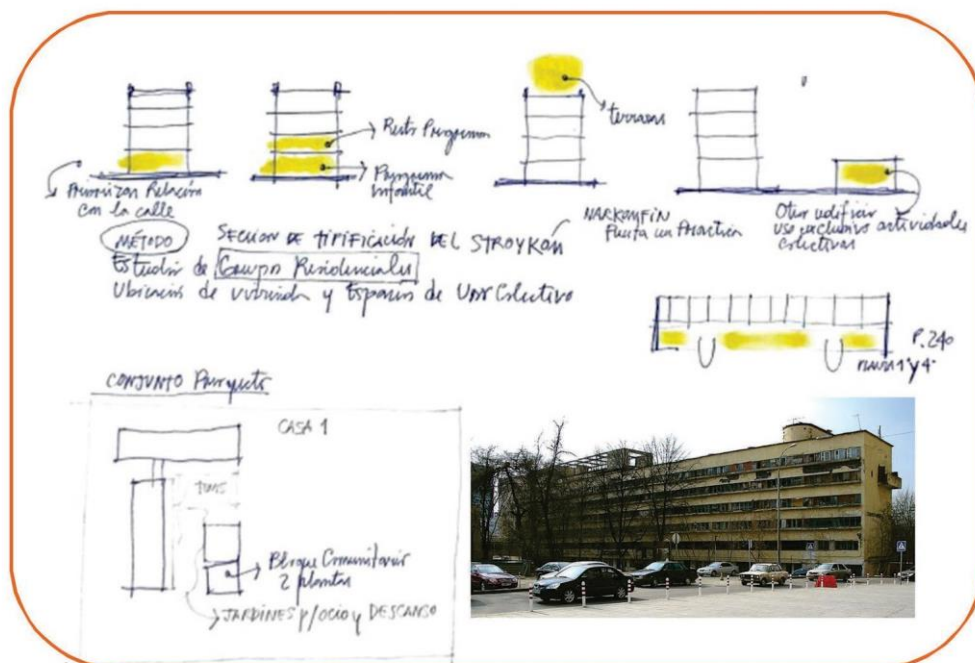 terrazas
Resto Programa
Programa
Infantil
Priorizan Relación
con la calle
NARKOMFIN
Otro edificio
uso exclusivo actividades
colectivas
MÉTODO SECCION DE TIPIFICACIÓN DEL STROYKÓM
Estudio de Grupos Residenciales
Ubicación de vivienda y Espacios de Uso Colectivo
P.240
1ª y 4ª
CONJUNTO Proyecto
CASA 1
Bloque Comunitario
2 plantas
JARDINES p/ocio y DESCANSO